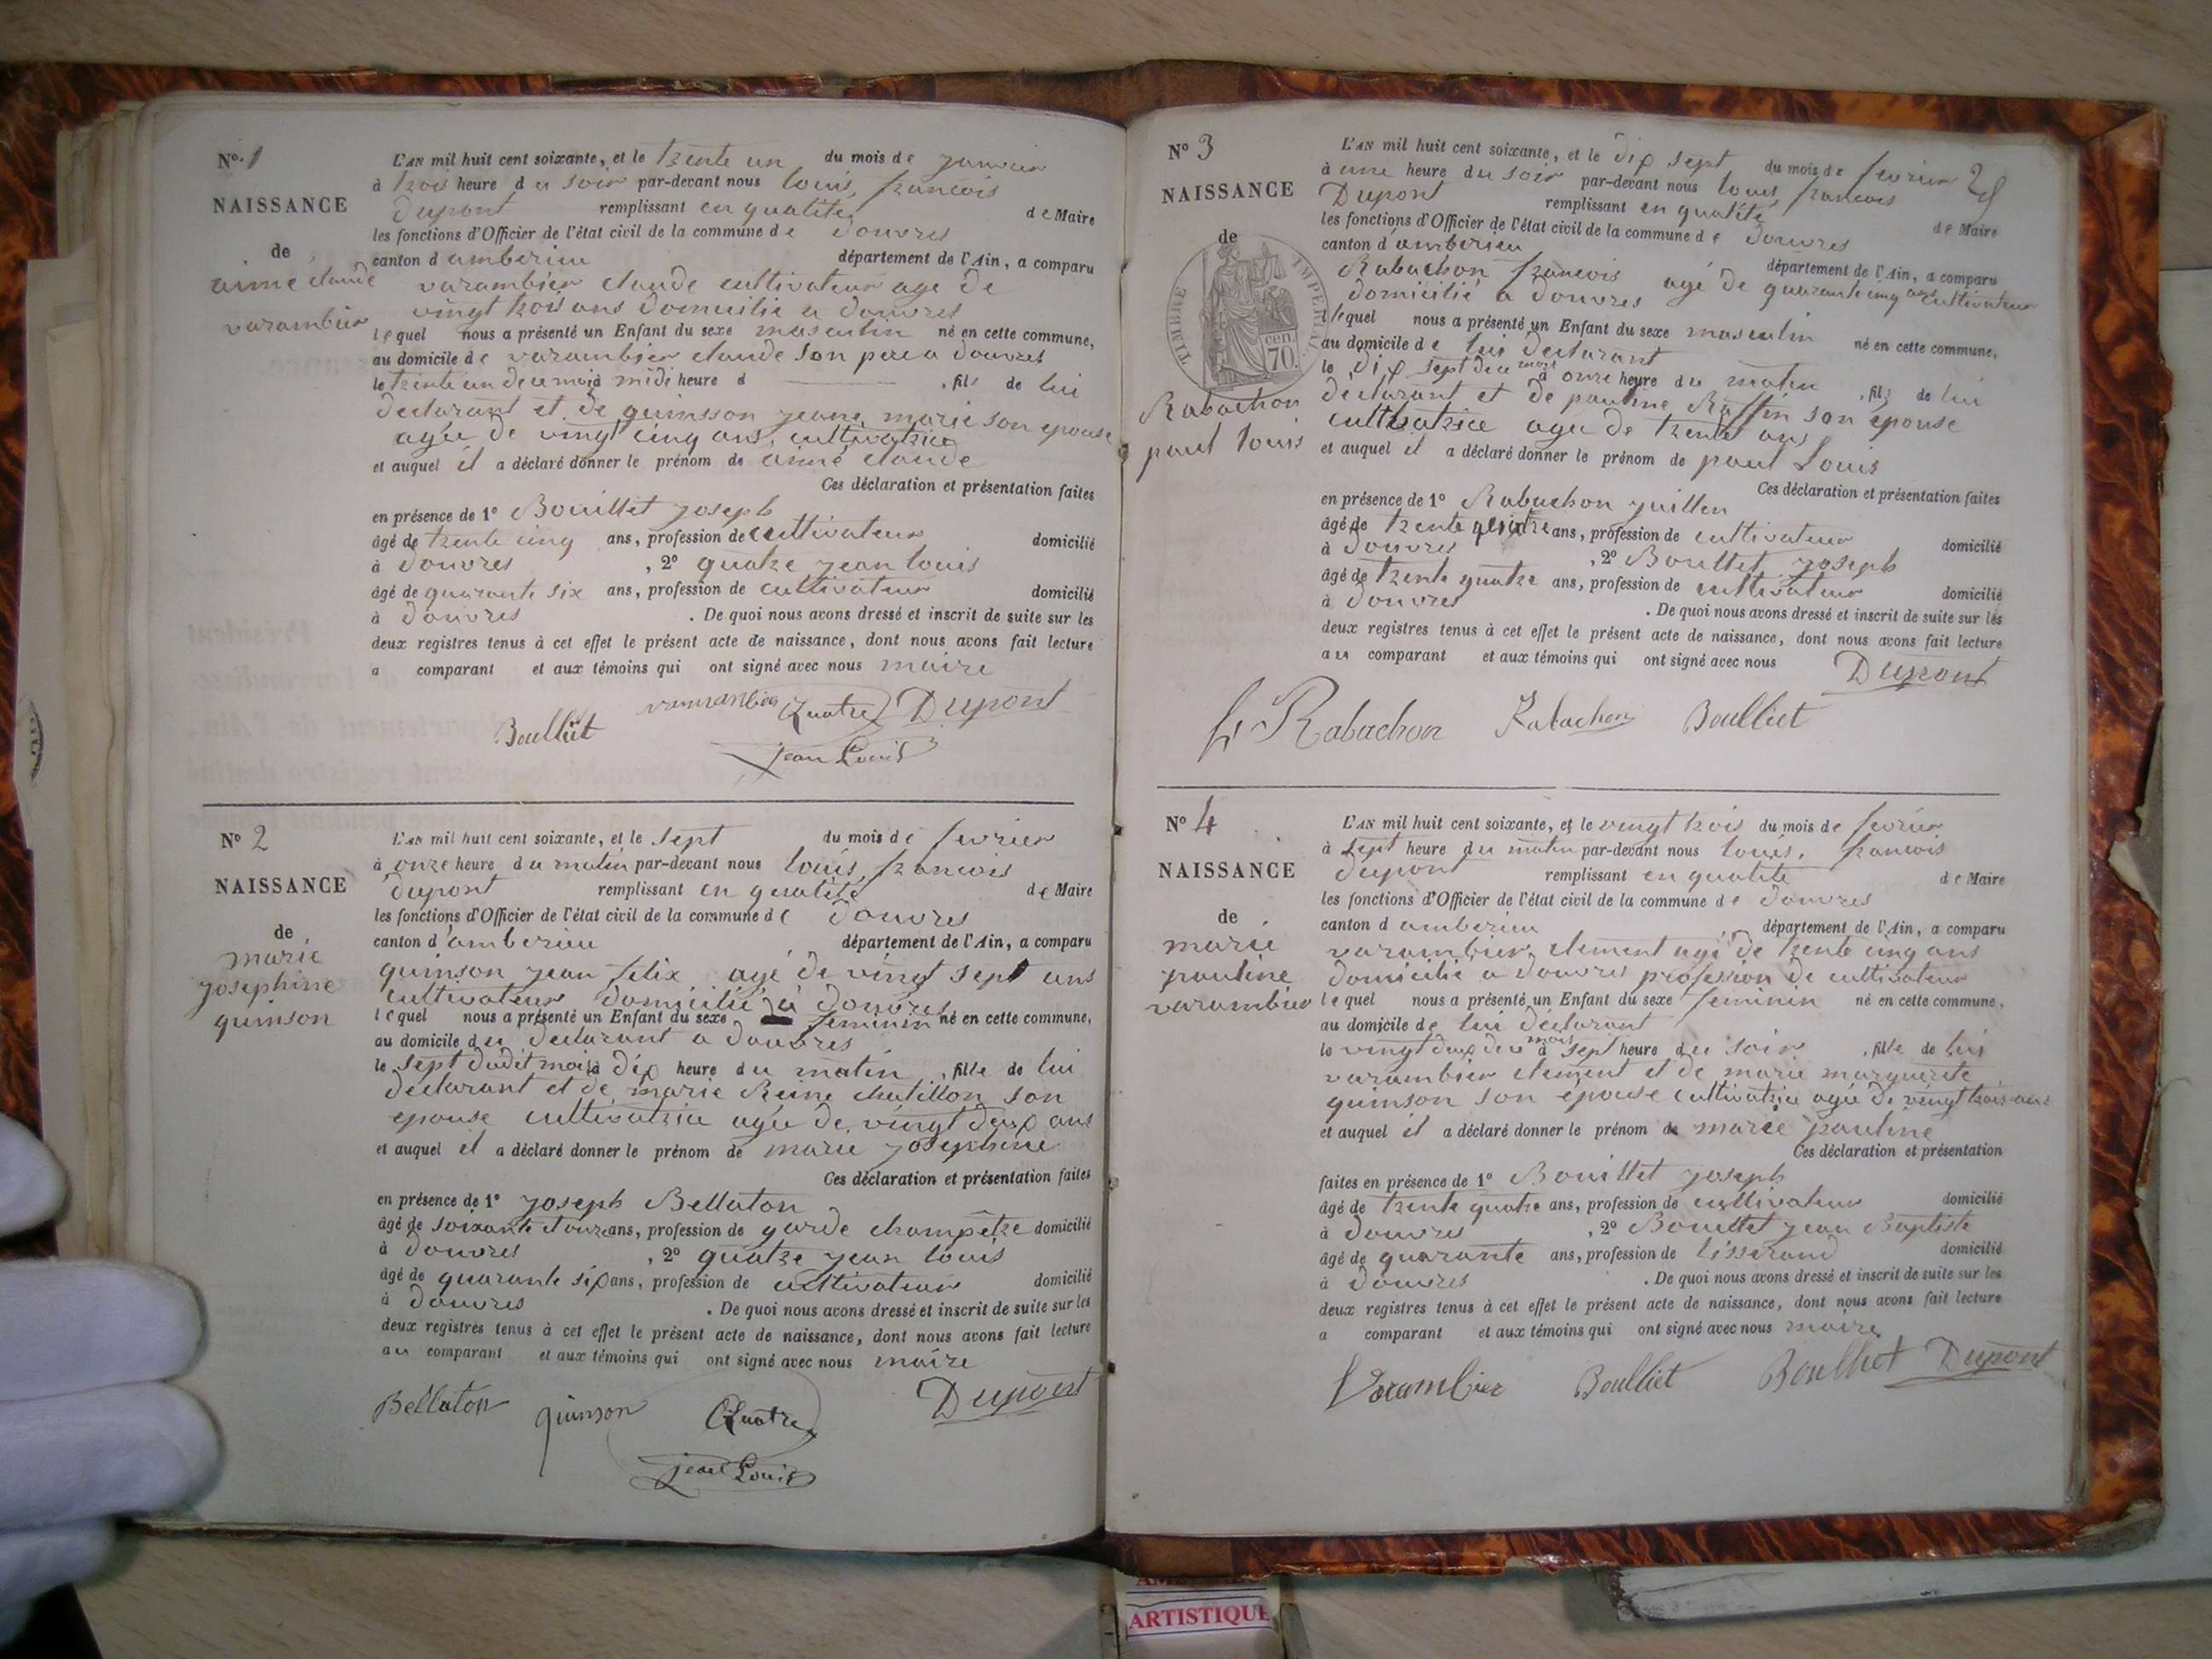 N°. 1
NAISSANCE
de
aimé claude
varambier
L'AN mil huit cent soixante, et le trente un du mois de janvier
à trois heure du soir par-devant nous louis, francois
dupont remplissant en qualité de Maire
les fonctions d'Officier de l'état civil de la commune de douvres
canton d'amberieu département de l'Ain, a comparu
varambier claude cultivateur agé de
vingt trois ans domicilié a douvres
lequel nous a présenté un Enfant du sexe masculin né en cette commune,
au domicile de varambier claude son père a douvres
le trente un de ce mois à midi heure d , fils de lui
declarant et de guinsson jeane marie son epouse
agée de vingt cinq ans, cultivatrice
et auquel il a déclaré donner le prénom de aimé claude
Ces déclaration et présentation faites
en présence de 1° Bouillet joseph
âgé de trente cinq ans, profession de cultivateur domicilié
à douvres , 2° quatre jean louis
âgé de quarante six ans, profession de cultivateur domicilié
à douvres . De quoi nous avons dressé et inscrit de suite sur les
deux registres tenus à cet effet le présent acte de naissance, dont nous avons fait lecture
a comparant et aux témoins qui ont signé avec nous maire
varrambier Quatre Dupont
Boulliet
jean Louis
N° 2
NAISSANCE
de
marie
josephine
quinson
L'AN mil huit cent soixante, et le sept du mois de fevrier
à onze heure du matin par-devant nous louis, francois
dupont remplissant en qualité de Maire
les fonctions d'Officier de l'état civil de la commune de douvres
canton d'amberieu département de l'Ain, a comparu
quinson jean felix agé de vingt sept ans
cultivateur domicilié à douvres
lequel nous a présenté un Enfant du sexe feminin né en cette commune,
au domicile du declarant a douvres
le sept dudit mois à dix heure du matin , fille de lui
declarant et de marie Reine chatillon son
epouse cultivatrice agée de vingt deux ans
et auquel il a déclaré donner le prénom de marie josephine
Ces déclaration et présentation faites
en présence de 1° joseph Bellaton
âgé de soixante et onze ans, profession de garde champêtre domicilié
à douvres , 2° quatre jean louis
âgé de quarante six ans, profession de cultivateur domicilié
à douvres . De quoi nous avons dressé et inscrit de suite sur les
deux registres tenus à cet effet le présent acte de naissance, dont nous avons fait lecture
au comparant et aux témoins qui ont signé avec nous maire
Bellaton quinson Quatre Dupont
jean Louis
N° 3
NAISSANCE
de
TIMBRE IMPERIAL
70 cen.
Rabachon
paul louis
L'AN mil huit cent soixante, et le dix sept du mois de fevrier
à une heure du soir par-devant nous louis, francois
Dupont remplissant en qualité de Maire
les fonctions d'Officier de l'état civil de la commune de douvres
canton d'amberieu département de l'Ain, a comparu
Rabachon francois agé de quarante cinq ans cultivateur
domicilié a douvres
lequel nous a présenté un Enfant du sexe masculin né en cette commune,
au domicile de lui declarant
le dix sept de ce mois à onze heure du matin , fils de lui
declarant et de pauline Raffin son épouse
cultivatrice agée de trente ans
et auquel il a déclaré donner le prénom de paul Louis
Ces déclaration et présentation faites
en présence de 1° Rabachon
âgé de trente quatre ans, profession de cultivateur domicilié
à douvres , 2° Bouillet joseph
âgé de trente quatre ans, profession de cultivateur domicilié
à douvres . De quoi nous avons dressé et inscrit de suite sur les
deux registres tenus à cet effet le présent acte de naissance, dont nous avons fait lecture
au comparant et aux témoins qui ont signé avec nous Dupont
Rabachon Rabachon Boulliet
N° 4
NAISSANCE
de
marie
pauline
varambier
L'AN mil huit cent soixante, et le vingt trois du mois de fevrier
à sept heure du matin par-devant nous louis, francois
dupont remplissant en qualité de Maire
les fonctions d'Officier de l'état civil de la commune de douvres
canton d amberieu département de l'Ain, a comparu
varambier clement agé de trente cinq ans
domicilié a douvres profession de cultivateur
lequel nous a présenté un Enfant du sexe feminin né en cette commune,
au domicile de lui déclarant
le vingt deux de ce mois à sept heure du soir , fille de lui
varambier clement et de marie marguerite
guinson son épouse cultivatrice agée de vingt trois ans
et auquel il a déclaré donner le prénom de marie pauline
Ces déclaration et présentation
faites en présence de 1° Bouillet joseph
âgé de trente quatre ans, profession de cultivateur domicilié
à douvres , 2° Bouillet jean Baptiste
âgé de quarante ans, profession de tisserand domicilié
à douvres . De quoi nous avons dressé et inscrit de suite sur les
deux registres tenus à cet effet le présent acte de naissance, dont nous avons fait lecture
a comparant et aux témoins qui ont signé avec nous maire
Varambier Boulliet Boulliet Dupont
ARTISTIQUE